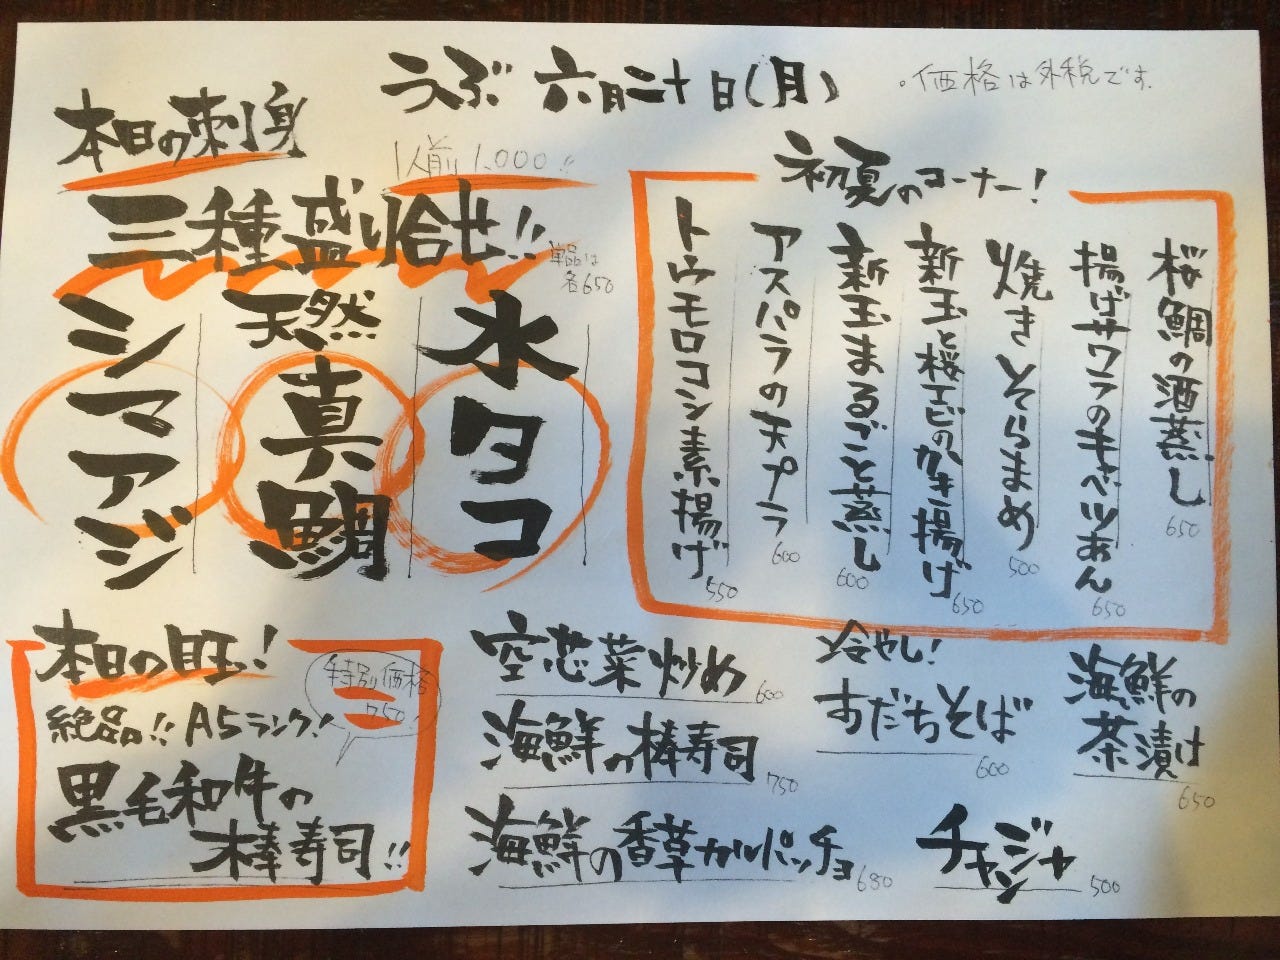 うぶ 六月二十日(月)
・価格は外税です.
本日の刺身
1人前1,000!!
三種盛り合せ!!
単品は
各650
水タコ
天然真鯛
シマアジ
初夏のコーナー!
桜鯛の酒蒸し 650
揚げサワラのキャベツあん 650
焼きそらまめ 500
新玉と桜エビのかき揚げ 650
新玉まるごと蒸し 600
アスパラの天プラ 600
トウモロコシ素揚げ 550
本日の目玉!
特別価格
750!
絶品!! A5ランク!
黒毛和牛の
棒寿司!!
空芯菜炒め 600
海鮮の棒寿司 750
海鮮の香草カルパッチョ 680
冷やし!
すだちそば 600
海鮮の
茶漬け 650
チャンジャ 500